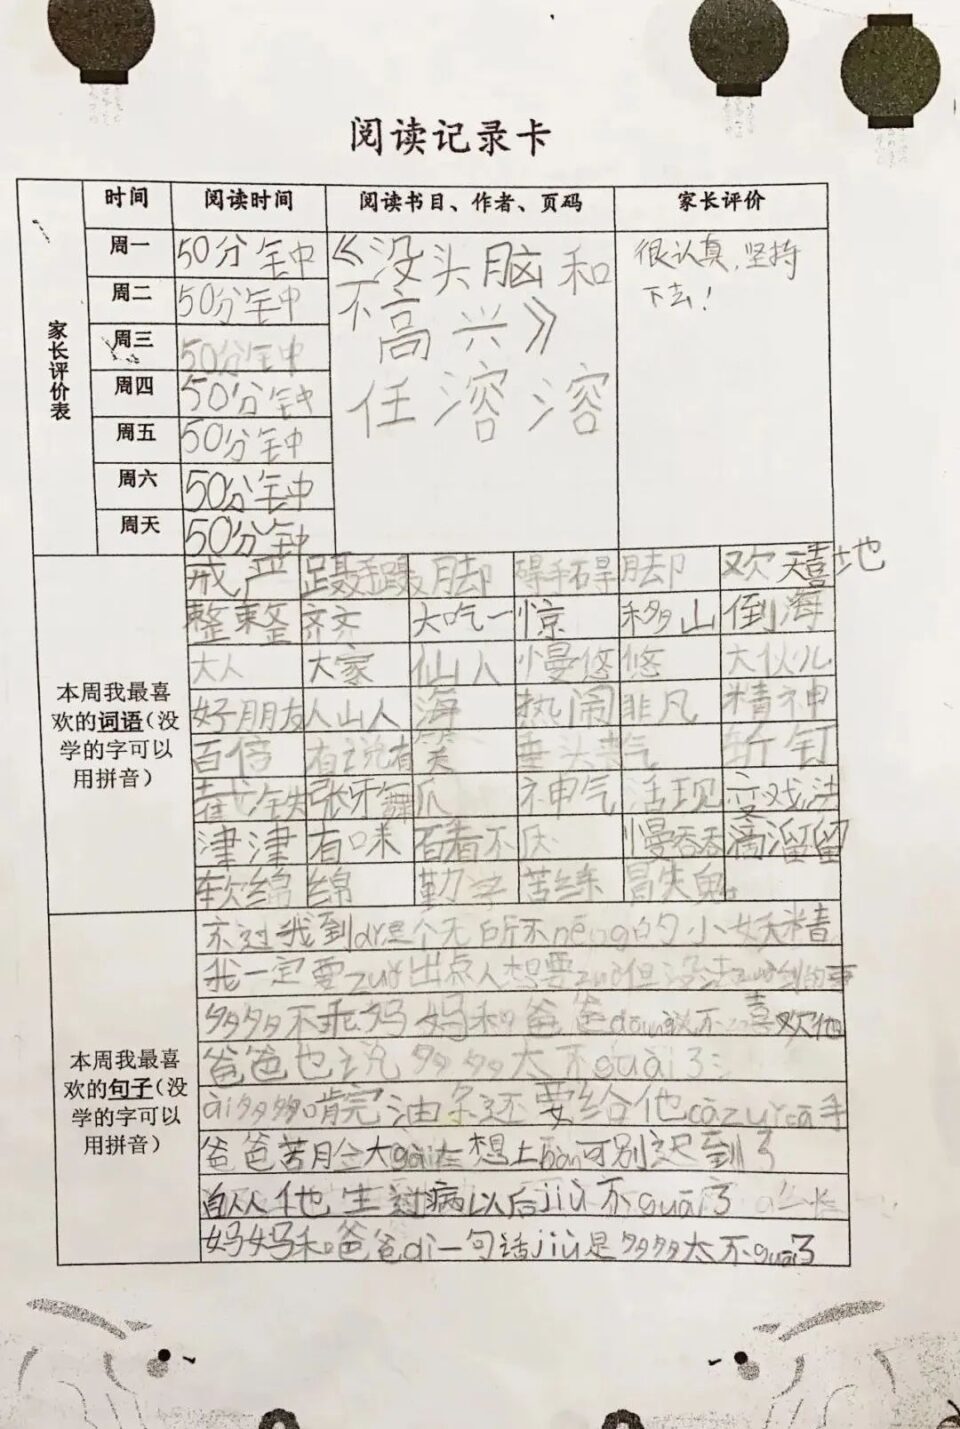 阅读记录卡
时间 阅读时间 阅读书目、作者、页码 家长评价
家长评价表
周一 50分钟
周二 50分钟
周三 50分钟
周四 50分钟
周五 50分钟
周六 50分钟
周天 50分钟
《没头脑和
不高兴》
任溶溶
很认真,坚持
下去!
本周我最喜
欢的词语(没
学的字可以
用拼音)
戒严 蹑手蹑脚 碍手碍脚 欢天喜地
整整齐齐 大吃一惊 移山倒海
大人 大家 仙人 慢悠悠 大伙儿
好朋友 人山人海 热闹非凡 精神
百倍 有说有笑 垂头丧气 斩钉
截铁 张牙舞爪 神气活现 变戏法
津津有味 百看不厌 慢吞吞 滴溜留
软绵绵 勤学苦练 冒失鬼
本周我最喜
欢的句子(没
学的字可以
用拼音)
不过我到 个无所不néng的小妖精
我一定要zuò出点人想要
多多不乖妈妈和爸爸dōu说不喜欢他
爸爸也说多多太不guāi了
多多啃完油条还要给他cā 手
爸爸 想上bān可别迟到了
自从他生过病以后jiù不guāi了
妈妈和爸爸 一句话jiù是多多太不guāi了